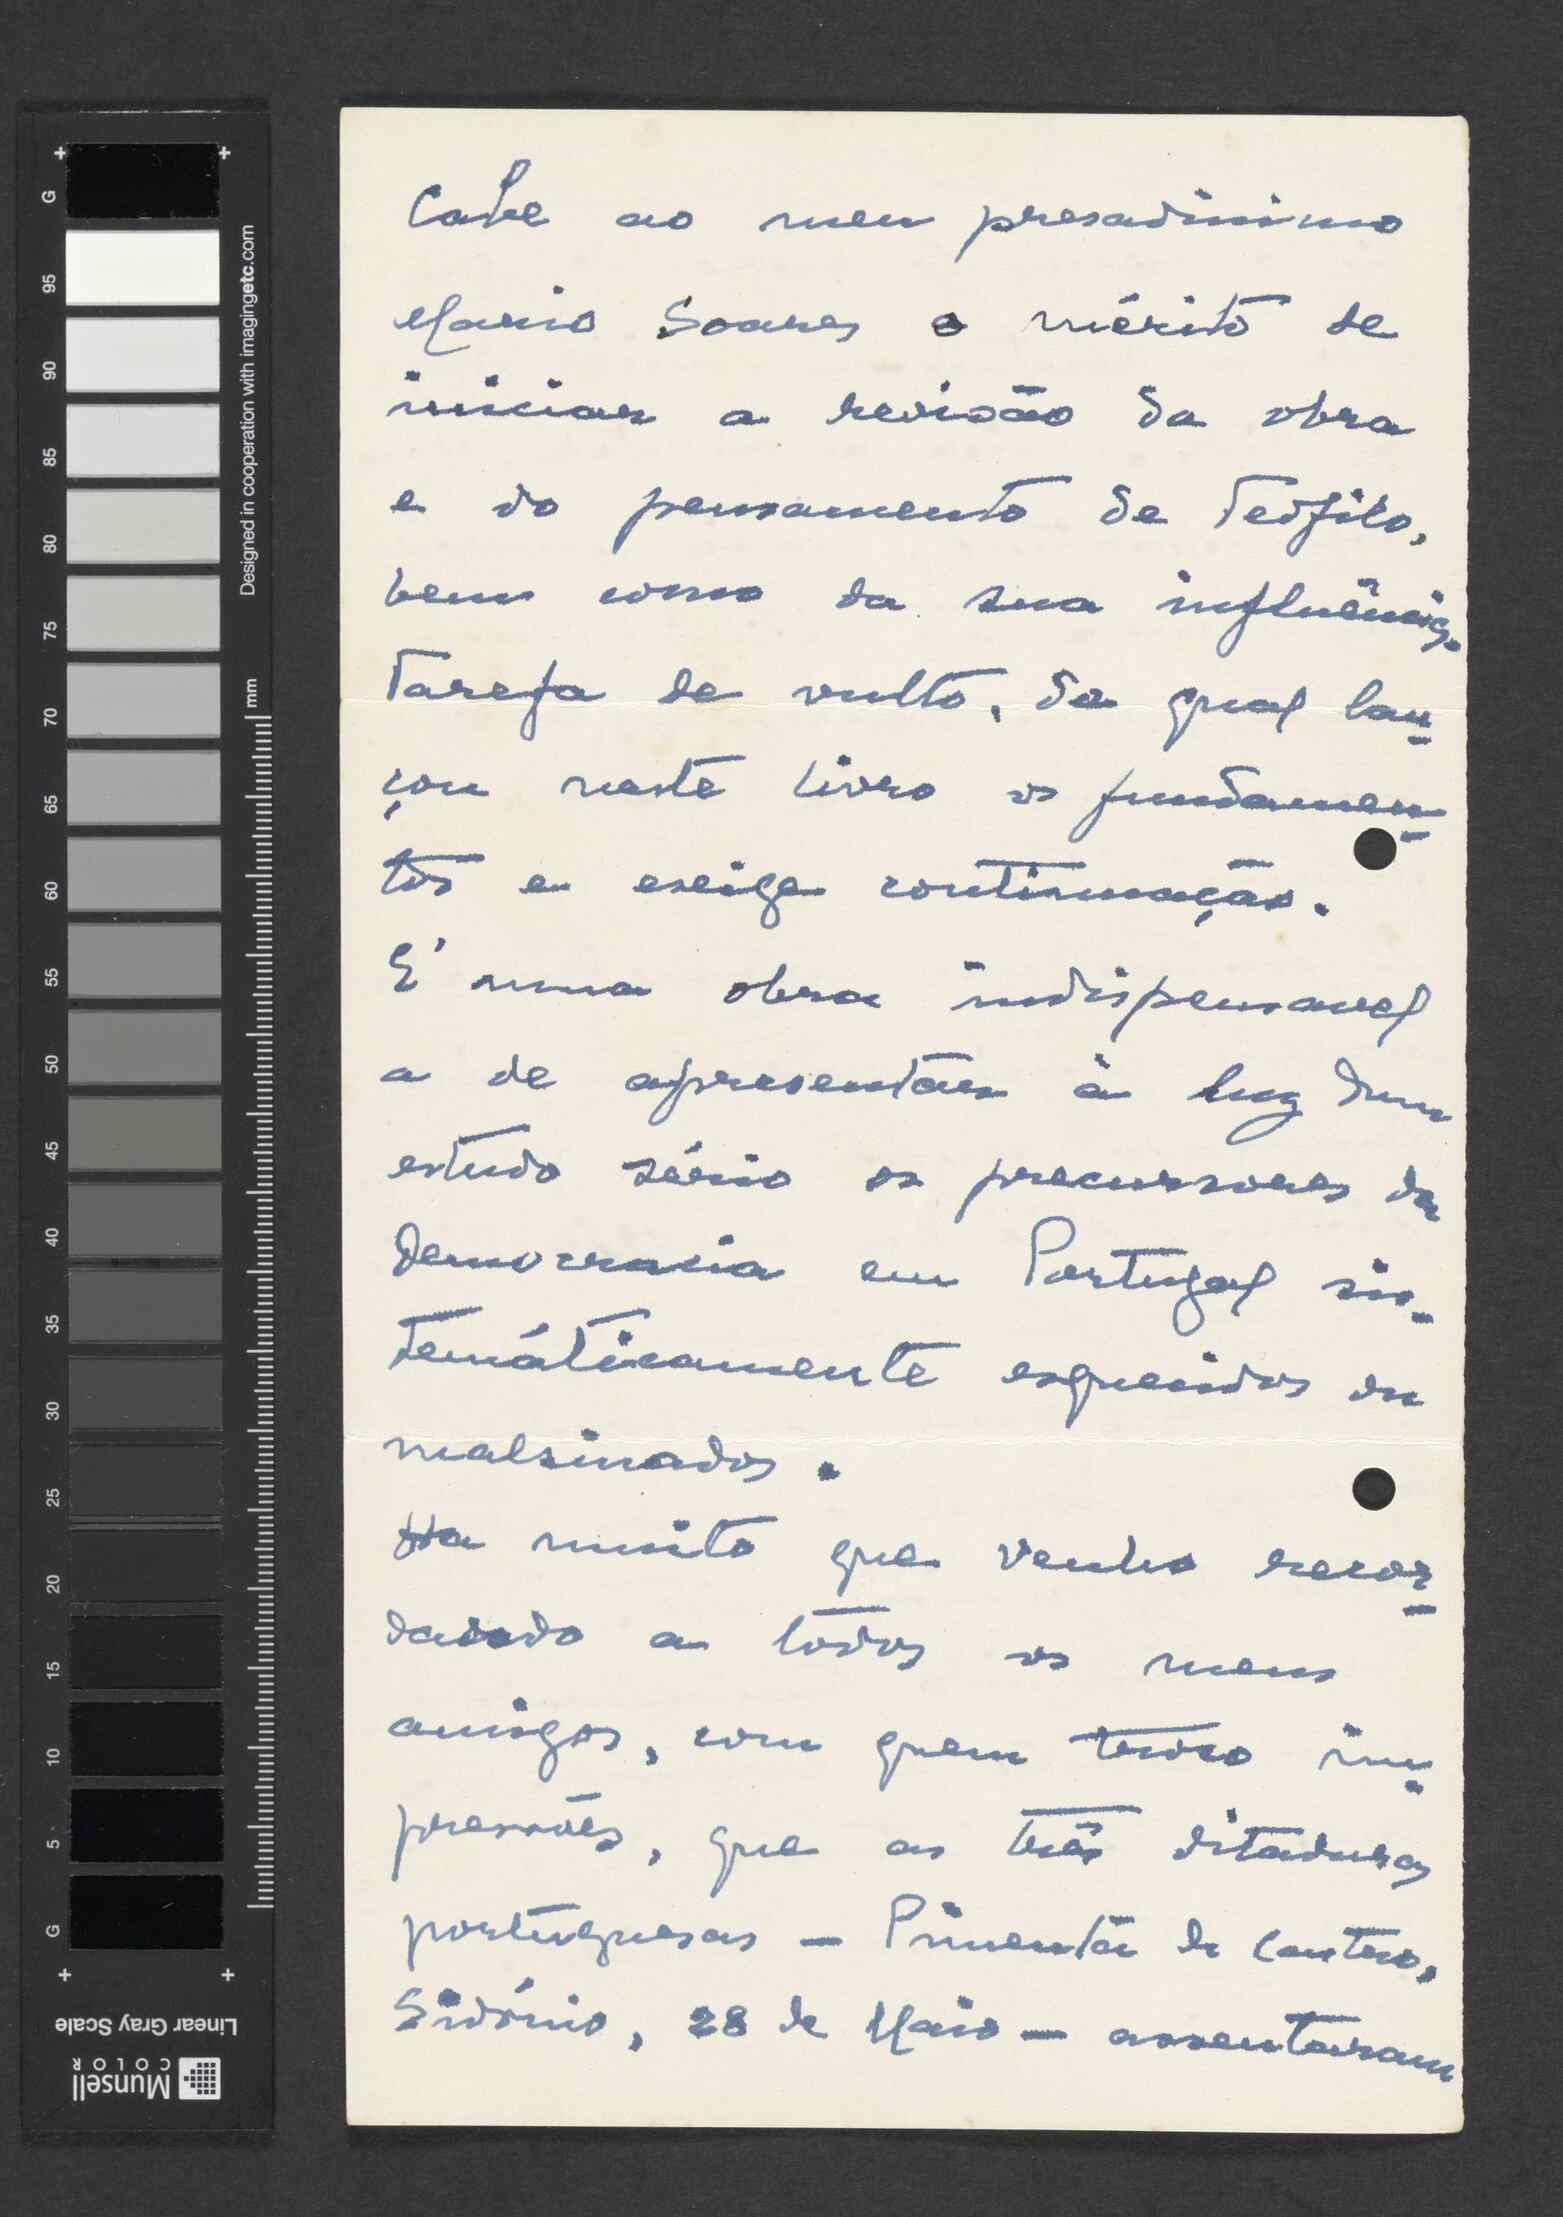 Cabe ao meu presadissimo
Mario Soares o mérito de
iniciar a revisão da obra
e do pensamento de Teófilo,
bem como da sua influência.
Tarefa de vulto, da qual lan-
çou neste livro os fundamen-
tos e exige continuação.
E' uma obra indispensavel
a de apresentar à luz dum
estudo sério os precursores da
democracia em Portugal sis-
temáticamente esquecidos ou
malsinados.
Ha muito que venho recor-
dando a todos os meus
amigos, com quem troco im-
pressões, que as três ditaduras
portuguesas — Pimenta de Castro,
Sidónio, 28 de Maio — assentaram
G
95
90
85
80
75
70
65
60
55
50
45
40
35
30
25
20
15
10
5
G
Designed in cooperation with imagingetc.com
mm
Linear Gray Scale
Munsell
COLOR